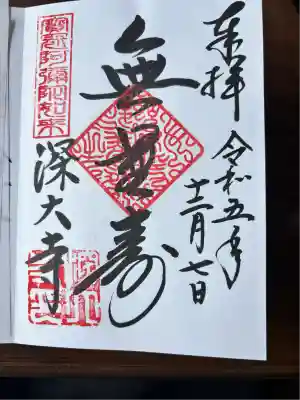 奉拝
令和五年
十二月七日
無量寿
寳冠阿彌陀如来
深大寺